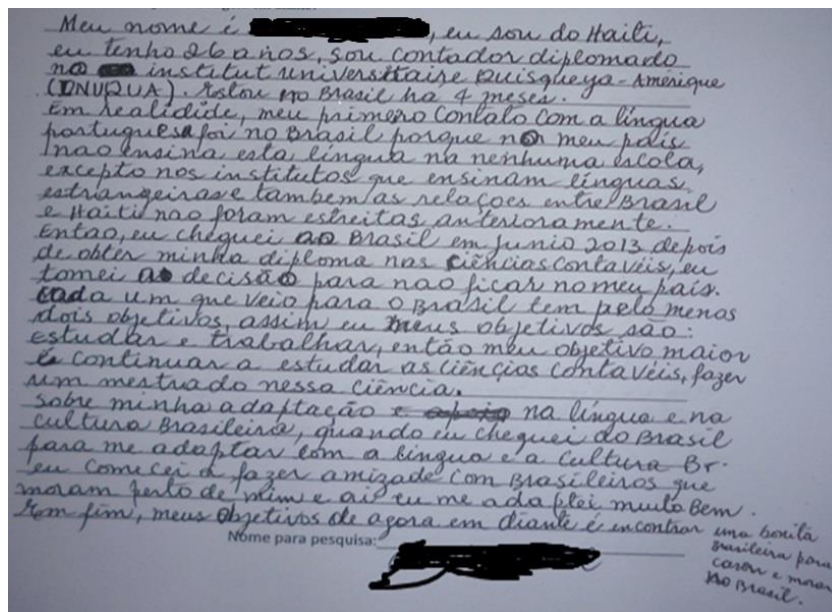 Meu nome é , eu sou do Haiti,
eu tenho 26 años, sou contador diplomado
no institut universitaire Quisqueya-Amérique
(INUQUA). Estou no Brasil ha 4 meses.
Em realidide, meu primero contato com a língua
portuguesa foi no Brasil porque no meu país
nao ensina esta língua na nenhuma escola,
excepto nos institutos que ensinam línguas
estrangeiras e tambem as relaçoes entre Brasil
e Haiti nao foram estreitas anterioramente.
Entao, eu cheguei ao Brasil em junio 2013 depois
de obter minha diploma nas Ciências contavéis, eu
tomei a decisão para nao ficar no meu país.
Cada um que veio para o Brasil tem pelo menas
dois objetivos, assim eu meus objetivos são:
estudar e trabalhar, então meu objetivo maior
é continuar a estudar as ciências contavéis, fazer
um mestrado nessa ciência.
sobre minha adaptação e na língua e na
cultura Brasileira, quando eu cheguei do Brasil
para me adaptar com a língua e a cultura Br.
eu comecei a fazer amizade com Brasileiros que
moram perto de mim e ai eu me adaptei muito Bem.
Em fim, meus objetivos de agora em diante é encontrar uma bonita
Brasileira para
casar e morar
no Brasil.
Nome para pesquisa: